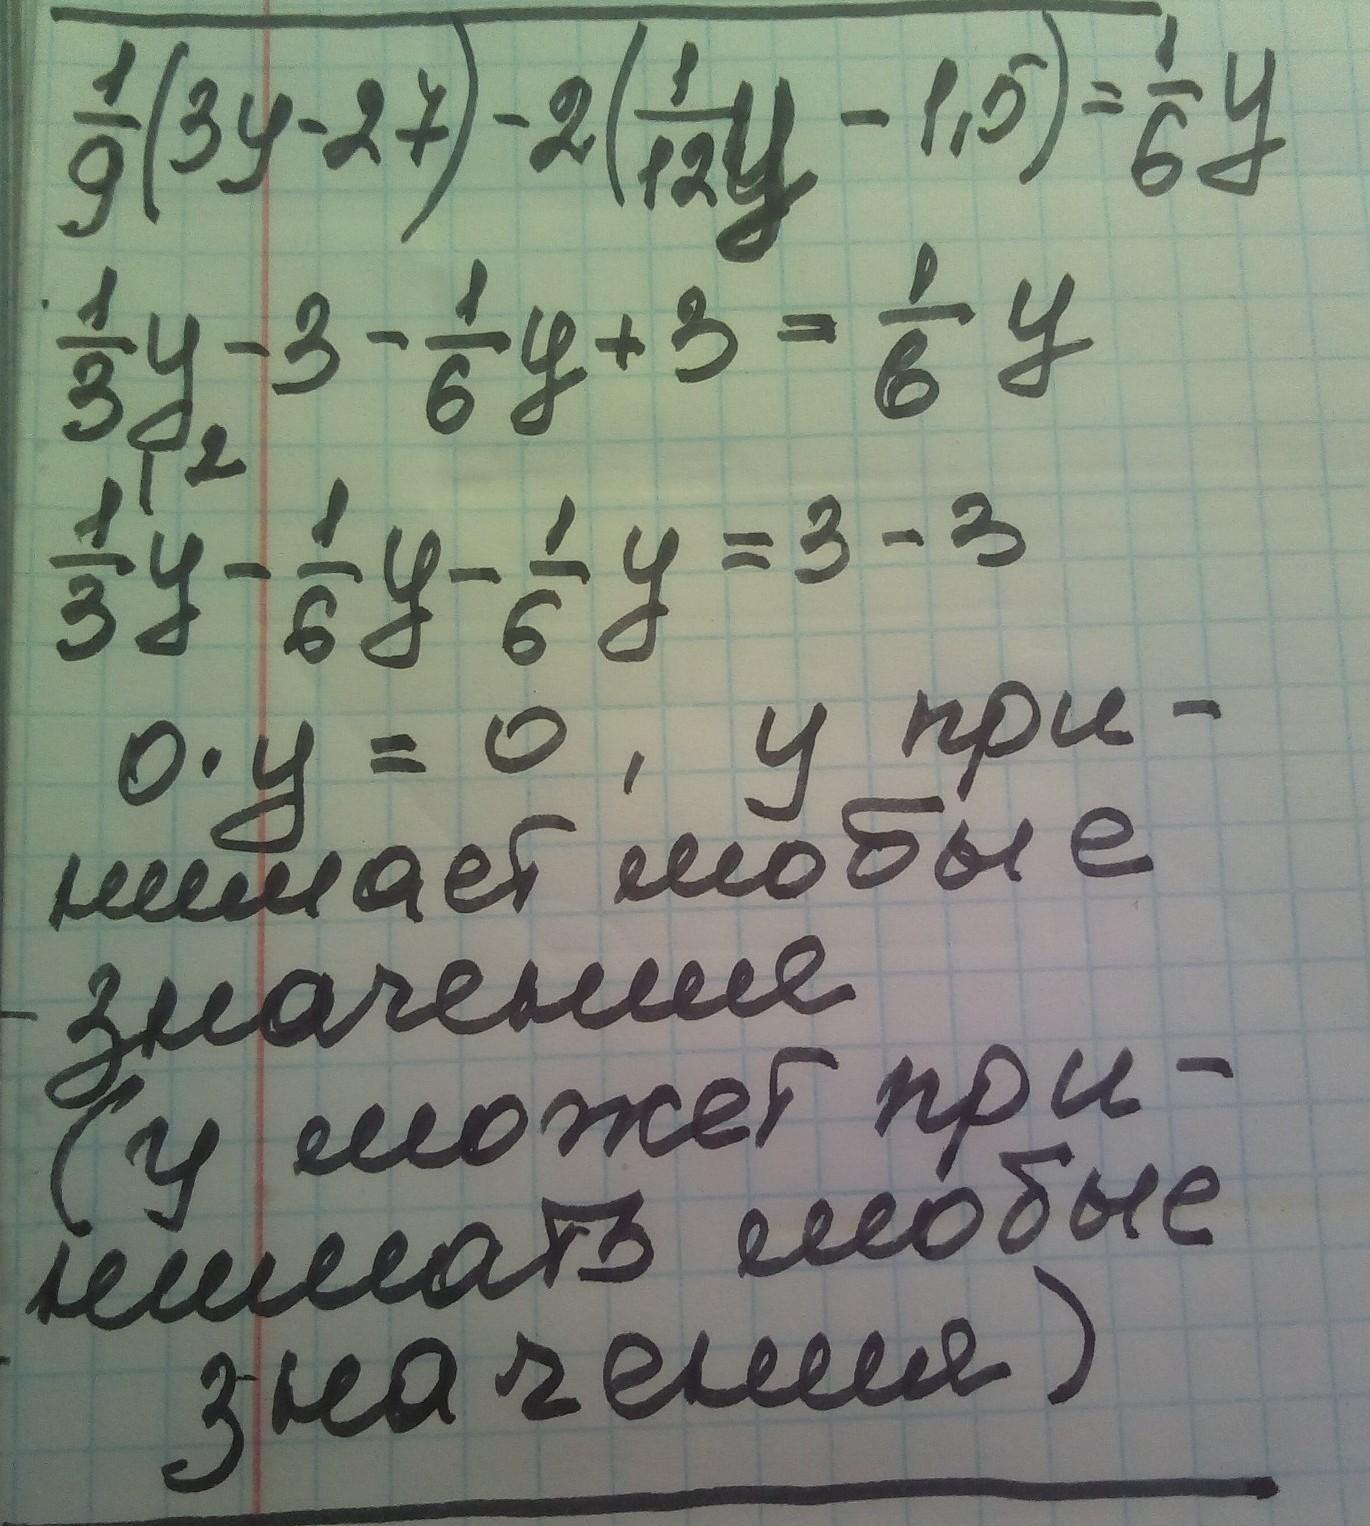 1/9(3y-27)-2(1/12y-1,5)=1/6y
1/3y-3-1/6y+3=1/6y
12
1/3y-1/6y-1/6y=3-3
0·y=0, y при-
нимает любые
значение
(y может при-
нимать любые
значения)